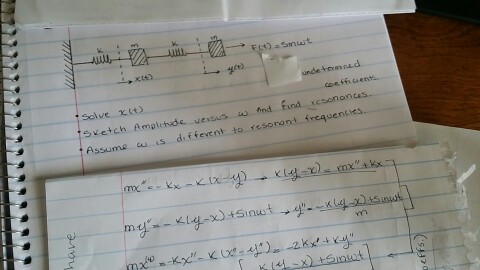 k m k m F(t) = sinωt
x(t) y(t)
undetermined
coefficients
• Solve x(t)
• Sketch Amplitude versus ω And find resonances.
• Assume ω is different to resonant frequencies.
mx'' = -kx - k(x-y) → k(y-x) = mx'' + kx
my'' = -k(y-x) + sinωt → y'' = -k(y-x) + sinωt
m
mx⁽⁴⁾ = -kx'' - k(x''-y'') = -2kx'' + ky''
k(y-x) + sinωt